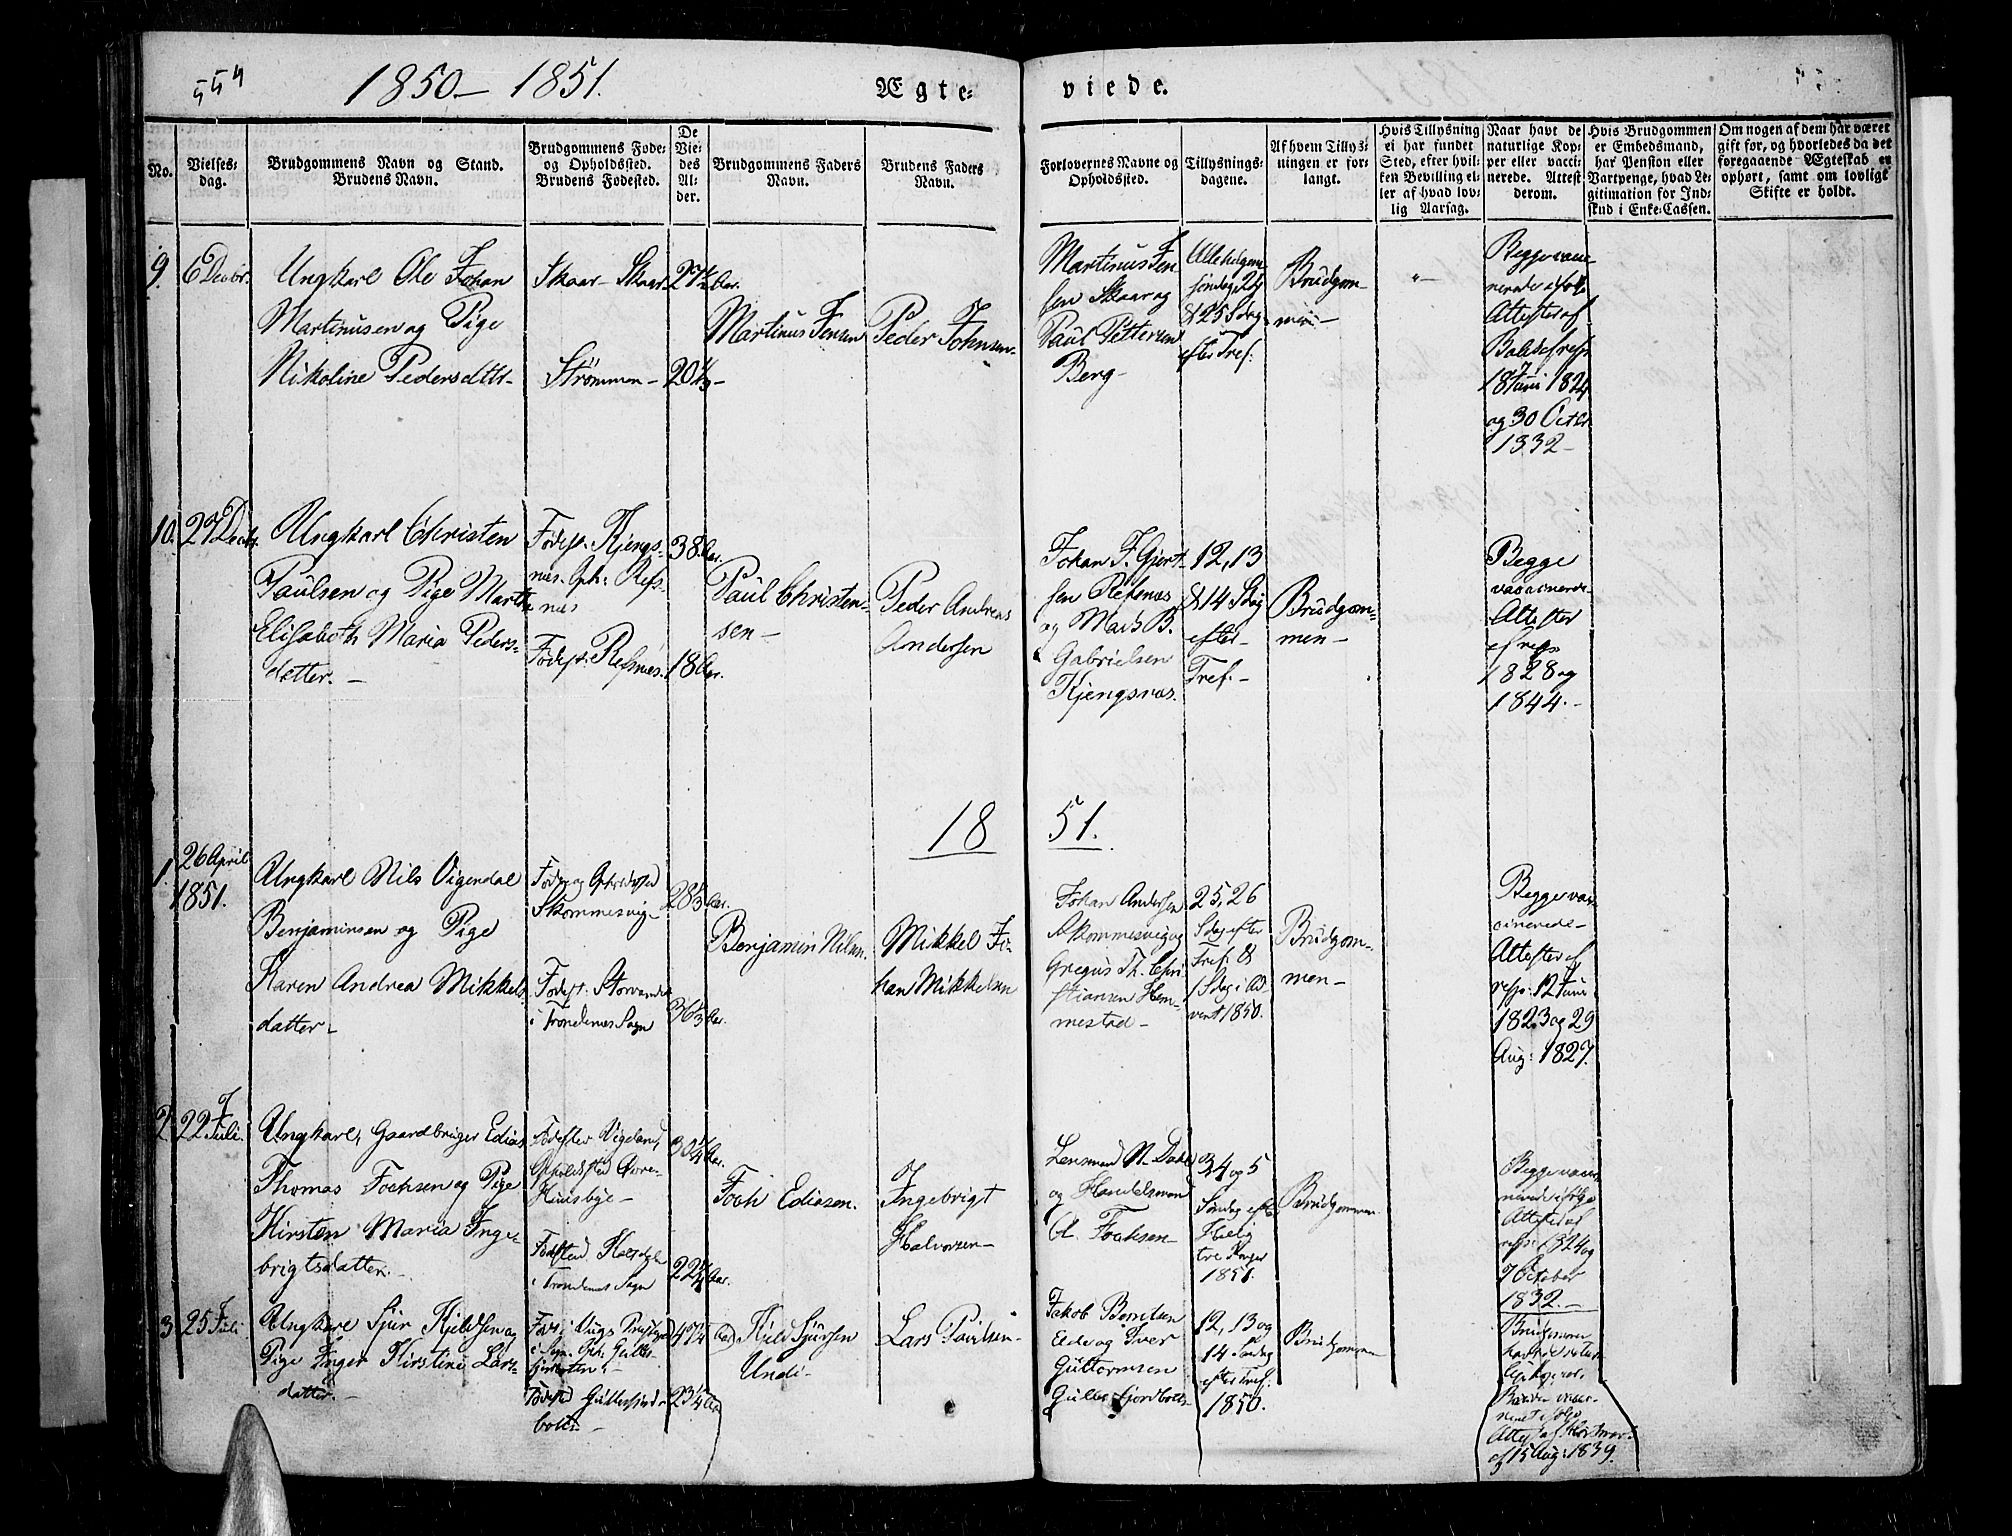 554
1850 – 1851.
Ægte-
viede.
No.
Vielses-
dag.
Brudgommens Navn og Stand.
Brudens Navn.
Brudgommens Føde-
og Opholdssted.
Brudens Fødested.
De
Vie-
des
Al-
der.
Brudgommens Faders
Navn.
Brudens Faders
Navn.
Forlovernes Navne og
Opholdssted.
Tillysnings-
dagene.
Af hvem Tillys-
ningen er for-
langt.
Hvis Tillysning
ei har fundet
Sted, efter hvil-
ken Bevilling el-
ler af hvad lov-
lig Aarsag.
Naar havt de
naturlige Kop-
per eller vacci-
nerede. Attest
derom.
Hvis Brudgommen
er Embedsmand,
har Pension eller
Vartpenge, hvad Le-
gitimation for Ind-
skud i Enke-Cassen.
Om nogen af dem har været
gift før, og hvorledes da det
foregaaende Ægteskab er
ophørt, samt om lovligt
Skifte er holdt.
9. 6 Decbr.
Ungkarl Ole Johan
Martinusen og Pige
Nikoline Pedersdttr-
Skaar – Skaar-
Strømmen –
27½ Aar.
20⅓ –
Martinus Jensen
Peder Johnsen-
Martinus Jen
sen Skaar og
Paul Pettersen
Berg -
Allehelgens
søndag, 24
& 25 Sdag
efter Tref:
Brudgom-
men –
"-
Begge vacci
nerede ifølge
Attester af
18 Juni 1824
og 30 Octbr
1832 –
10. 27 Decbr.
Ungkarl Christen
Paulsen og Pige Marthe
Elisabeth Maria Peders-
datter. –
Fødest. Kjengs-
næs. Oph: Refs-
næs
Fødest: Refsnæs.
38 Aar.
18 Aar.
Paul Christen-
sen –
Peder Andreas
Andersen
Johan J. Gjert-
sen Refsnæs
og Mark B.
Gabrielsen
Kjengsnæs.
12, 13
& 14 Sdg
efter
Tref. -
Brudgom-
men –
Begge
vaccinerede
Attester
af resp
1828 og
1844. -
18 51.
1. 26 April
1851.
Ungkarl Nils Vigendal
Benjaminsen og Pige
Karen Andrea Mikkels
datter –
Føde og Opholdssted
Skommesvig -
Fødest. Storvande
i Trondenes Sogn
28⅓ Aar.
36⅓ Aar.
Benjamin Nilsen.
Mikkel Jo-
han Mikkelsen
Johan Andersen
Skommesvig og
Gregus Th. Chri-
stiansen Hem-
mestad –
25, 26
Sdag efter
Tref: &
1 Sdag i Ad
vent 1850.
Brudgom-
men –
Begge vac-
cinerede –
Attester af
resp: 12 Juni
1823 og 29
Aug: 1827.
2. 22 Juli.
Ungkarl, Gaardbruger Edias
Thomas Fochsen og Pige
Kirsten Maria Inge-
brigtsdatter. -
Fødested Vigeland,
Opholdssted Øvre-
Huusbye –
Fødested
i Trondenes Sogn
30¼ Aar.
22¼ Aar.
Foch Ediasen.
Ingebrigt
Halvorsen –
Lensmand N. Dahl
og Handelsmand
A. Fochsen –
3, 4 og 5
Søndag efter
Hellig
tre Konger
1851.
Brudgommen
Begge vacci
nerede ifølge
Attester af
resp: 1824 og
7 October
1832. –
3. 25 Juli
Ungkarl Sjur Kjeldsen og
Pige Inger Kirstine Lars-
datter. –
Fød i Vags Præstegjeld
i Sogn. Oph. Gulles-
fjordbotn -
Fødested Gullesfjord-
botn –
47¼ Aar
23¼ Aar
Kjeld Sjursen
Undi -
Lars Paulsen –
Jakob Berntsen
Eide og Iver
Guttormsen
Gullesfjordbotn -
12, 13 og
14 Søndag
efter Tref:
1850.
Brudgommen
Brudgommen
havt de natur-
lige Kopper.
Bruden vacci-
neret ifølge
Attest af Klokker
af 15 Aug: 1839.